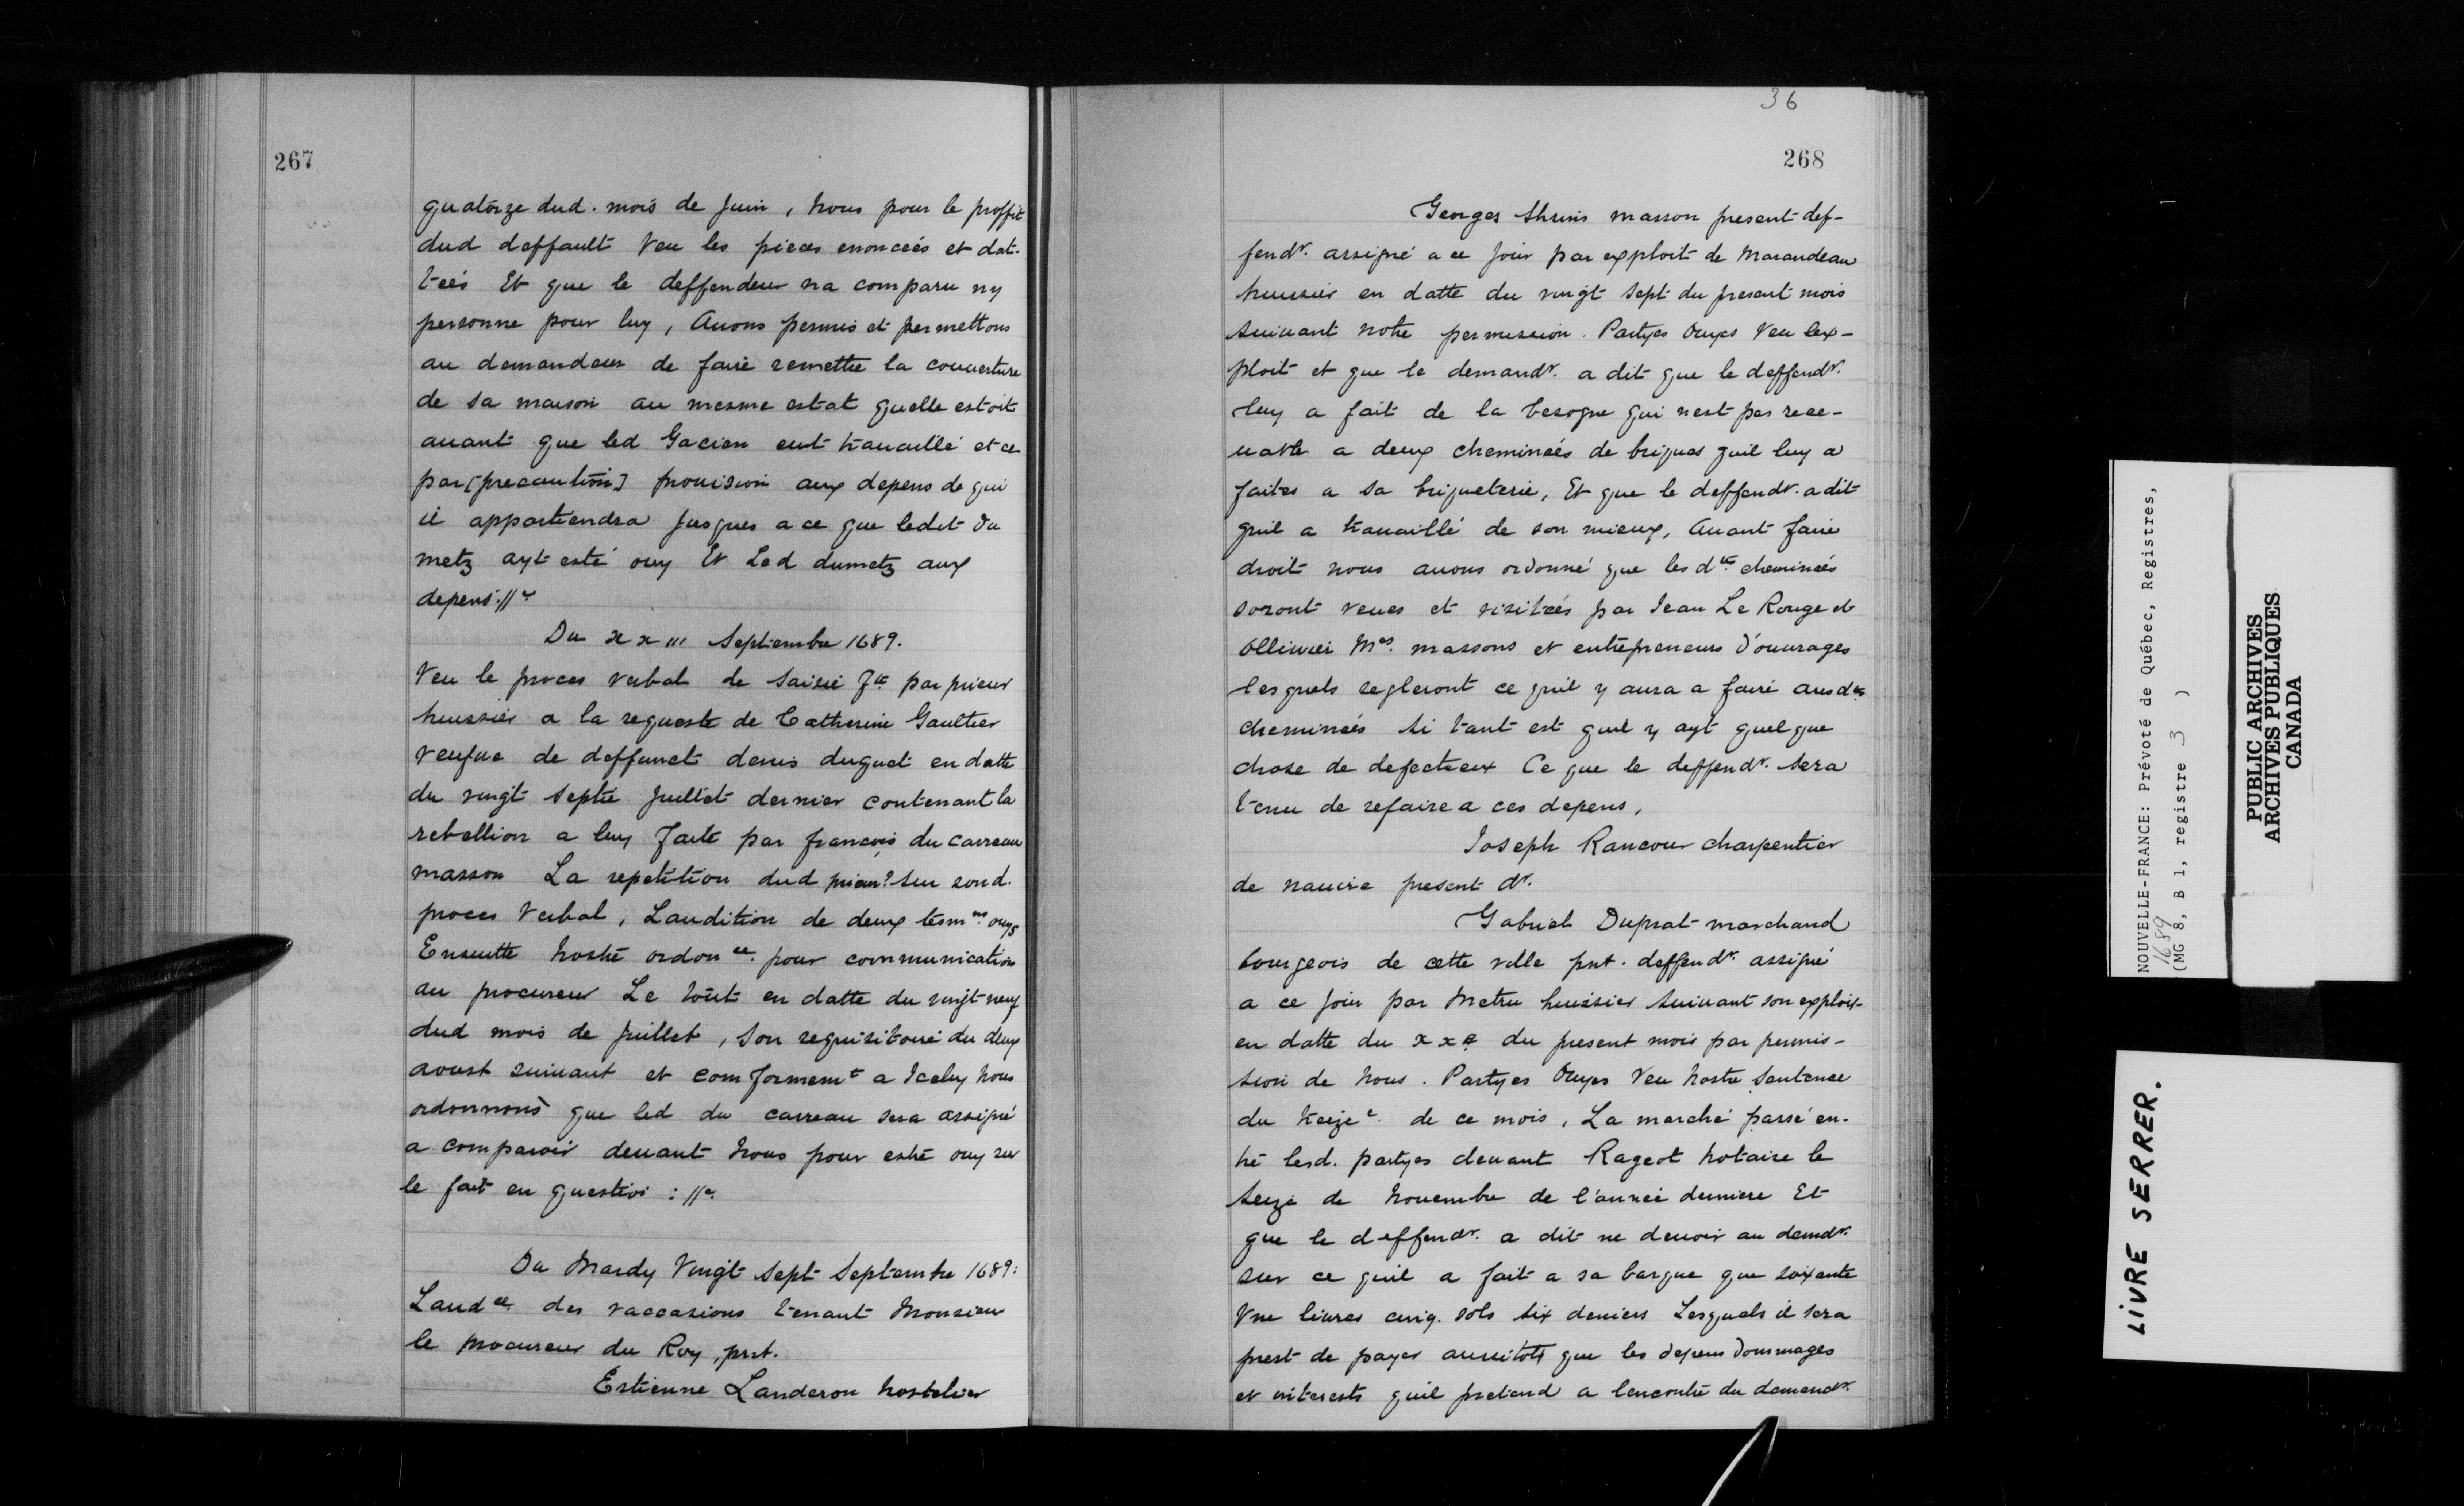 267
quatorze dud. mois de Juin, nous pour le proffit
dud deffault Veu les pieces enonceés et dat-
teés Et que le deffendeur na comparu ny
personne pour luy, Auons permis et permettons
au demandeur de faire remettre la couuerture
de sa maison au mesme estat quelle estoit
auant que led Gacien eut trauaillé et ce
par [precaution] prouision aux depens de qui
il appartiendra Jusques a ce que ledit du
metz ayt esté ouy Et Led dumetz aux
depens://
Du xxiii Septembre 1689.
Veu le proces verbal de Saisie fte par prieur
huissier a la requeste de Catherine Gaultier
veufue de deffunct denis duguet en datte
du vingt septie Juillet dernier contenant la
rebellion a luy faite par francois du carreau
masson La repetition dud prieur? Sur sond.
proces Verbal, Laudition de deux tesmns ouys
Ensuitte nostre ordonce. pour communication
au procureur Le tout en datte du vingt neuf
dud mois de Juillet, Son requisitoire du deux
aoust suiuant et comformemt a Iceluy nous
ordonnons que led du carreau sera assigné
a comparoir deuant nous pour estre ouy sur
le fait en question : //
Du Mardy Vingt Sept Septembre 1689:
Laudce des vaccasions tenant Monsieur
le procureur du Roy, prnt.
Estienne Landeron hostelier
36
268
Georges masson present def-
fendr. assigné a ce jour par exploit de Marandeau
huissier en datte du vingt sept du present mois
suiuant notre permission. Partyes Ouyes Veu lex-
ploit et que le demandr. a dit que le deffendr.
luy a fait de la besogne qui nest pas rece-
uable a deux cheminées de briques quil luy a
faites a sa briqueterie, Et que le deffendr. a dit
quil a trauaillé de son mieux, Auant faire
droit nous auons ordonné que les dtes cheminées
seront veues et visitées par Jean Le Rouge et
Olliuier Mes. massons et entrepreneurs d'ouurages
lesquels regleront ce quil y aura a faire ausdes
cheminées Si tant est quil y ayt quelque
chose de defectueux Ce que le deffendr. sera
tenu de refaire a ces depens,
Joseph Rancour charpentier
de nauire present dr.
Gabriel Duprat marchand
bourgeois de cette ville pnt. deffendr. assigné
a ce jour par Metru huissier suiuant son exploit
en datte du xxe du present mois par permis-
sion de nous. Partyes Ouyes Veu nostre Sentence
du treize. de ce mois, La marché passé en-
tre lesd. partyes deuant Rageot notaire le
seize de nouembre de l'année derniere Et
que le deffendr. a dit ne deuoir au demdr.
sur ce quil a fait a sa barque que soixante
Vne liures cinq. sols six deniers Lesquels il sera
prest de payer aussitost que les depens dommages
et interests quil pretend a lencontre du demandr.
NOUVELLE-FRANCE: Prévoté de Québec, Registres,
1689
(MG 8, B 1, registre 3 )
PUBLIC ARCHIVES
ARCHIVES PUBLIQUES
CANADA
LIVRE SERRER.